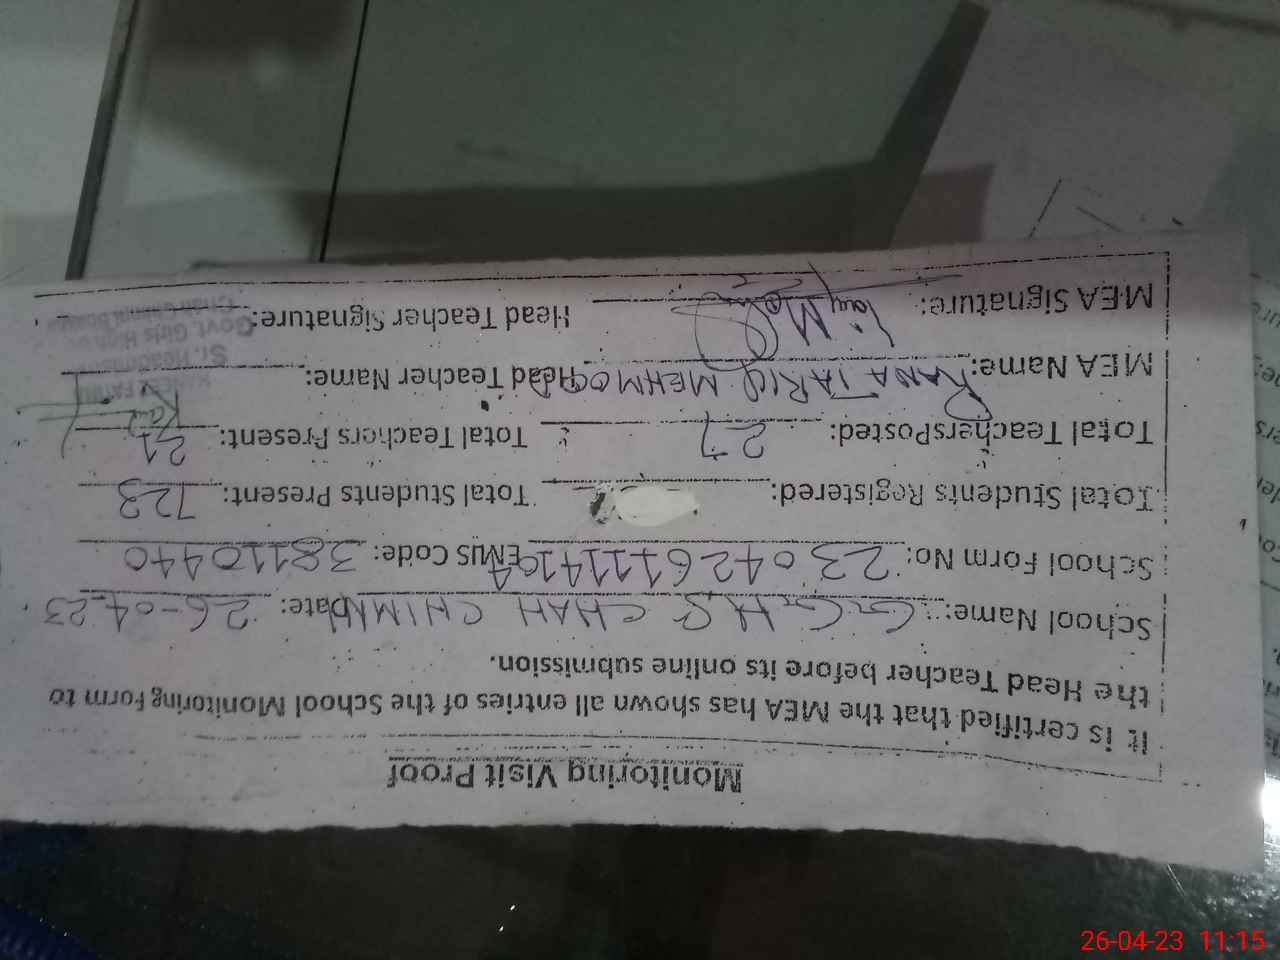 Monitoring Visit Proof
It is certified that the MEA has shown all entries of the School Monitoring Form to
the Head Teacher before its online submission.
School Name: G.G.H.S CHAH CHIMNI Date: 26-04-23
School Form No: EMIS Code: 38110440
Total Students Registered: Total Students Present: 723
Total TeachersPosted: 27 Total Teachers Present: 21
MEA Name: RANA TARIQ MEHMOOD Head Teacher Name:
MEA Signature: Head Teacher Signature:
Sr. Headmis
Govt. Girls High
26-04-23 11:15